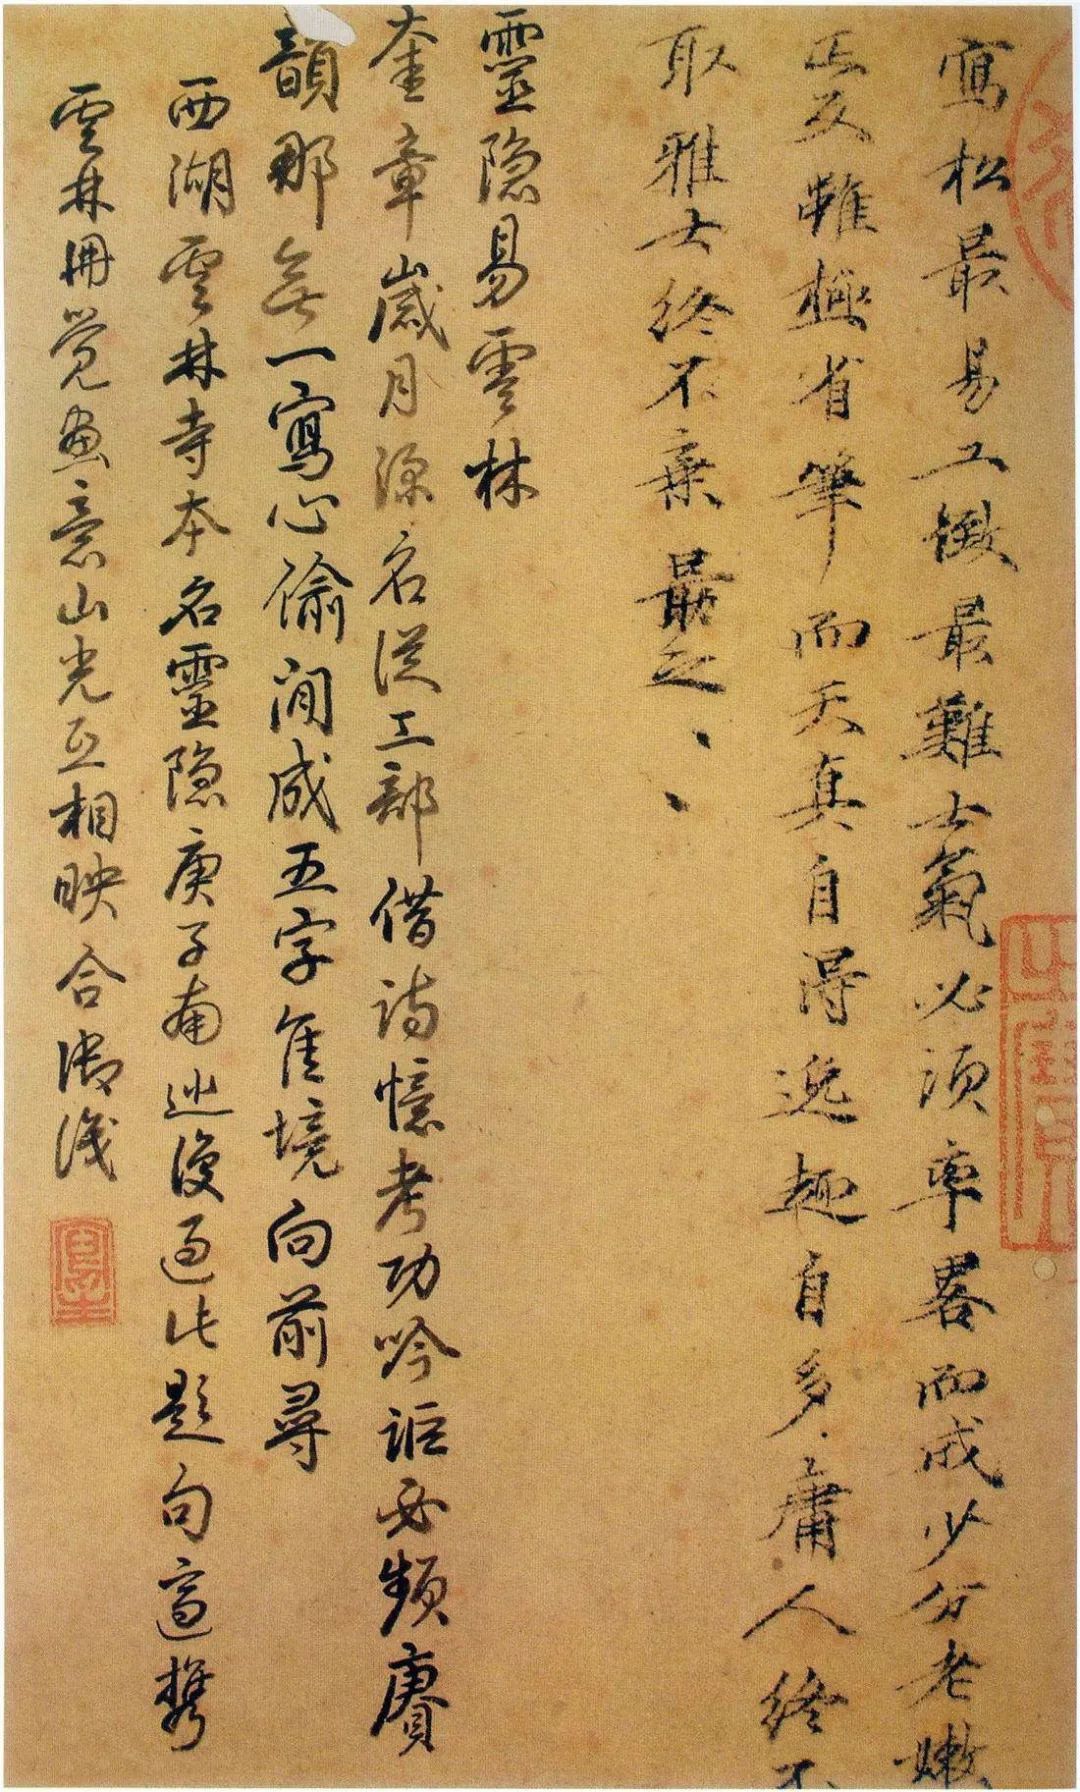 寫松最易工緻最難士氣必須率畧而成少分老嫩
正反雖極省筆而天真自得逸趣自多庸人終不
取雅士終不棄勗之、、
靈隱易雲林
奎章歲月深名從工部借詩憶考功吟詎必頻賡
韻那無一寫心偷閒成五字佳境向前尋
西湖雲林寺本名靈隱庚子南巡復過此題句適攜
雲林冊覺畫意山光互相映合御識